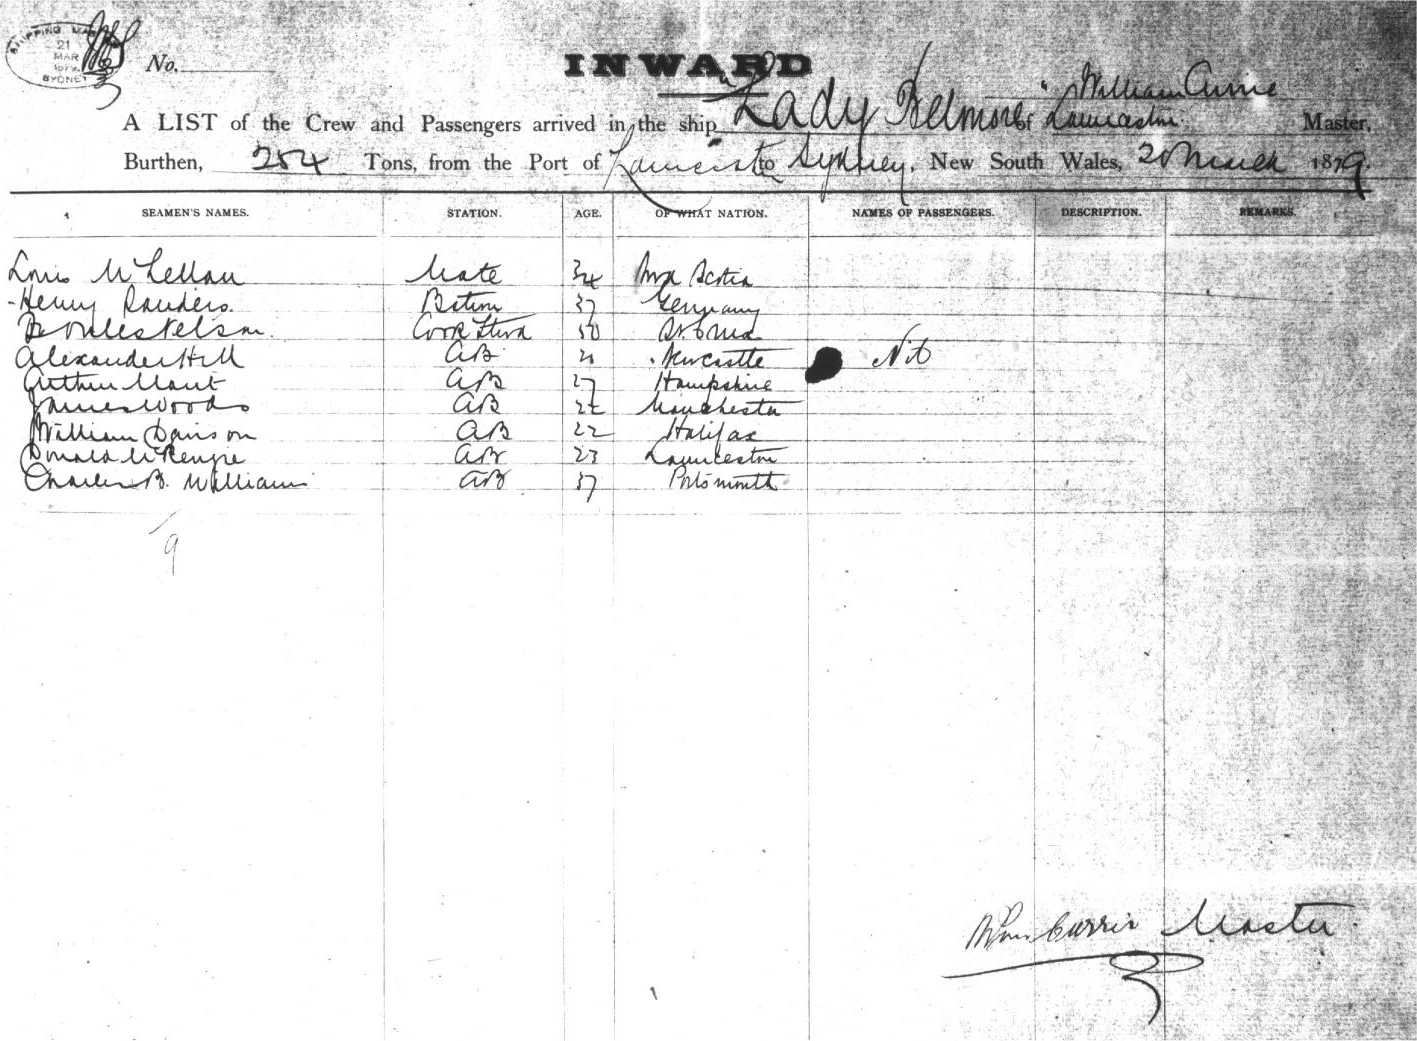 SHIPPING MASTER
21
MAR
1879
SYDNEY
No.
INWARD
William Currie
A LIST of the Crew and Passengers arrived in the ship "Lady Belmore" of Launceston Master,
Burthen, 254 Tons, from the Port of Launceston to Sydney, New South Wales, 20 March 1879
SEAMEN'S NAMES. STATION. AGE. OF WHAT NATION. NAMES OF PASSENGERS. DESCRIPTION. REMARKS.
Louis McLellan Mate 34 Nova Scotia
Henry Sanders Botsn 37 Germany
Nelson Cook Stwd 50
Alexander Hill AB Newcastle Nil
Arthur Mant AB 27 Hampshire
James Woods AB Manchester
William Davison AB 22 Halifax
Donald McKenzie AB 23 Launceston
Charles B. William AB 37 Portsmouth
9
Wm Currie Master